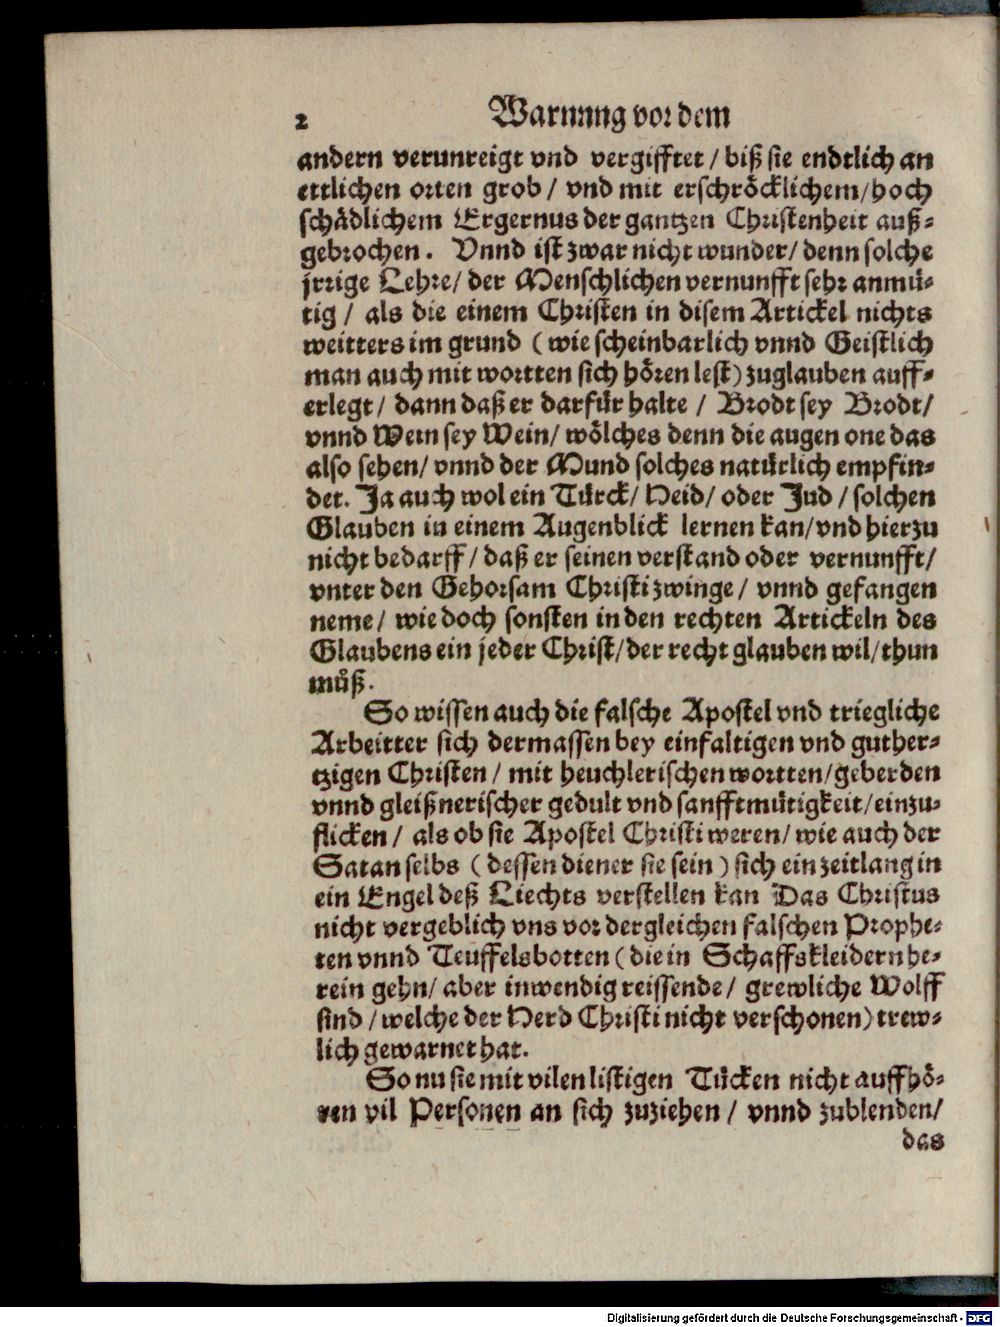 2 Warnung vor dem
andern verunreigt vnd vergifftet / biß sie endtlich an
ettlichen orten grob / vnd mit erschröcklichem/hoch
schädlichem Ergernus der gantzen Christenheit auß-
gebrochen. Vnnd ist zwar nicht wunder/ denn solche
jrrige Lehre/ der Menschlichen vernunfft sehr anmü-
tig / als die einem Christen in disem Artickel nichts
weitters im grund (wie scheinbarlich vnnd Geistlich
man auch mit wortten sich hören lest) zuglauben auff-
erlegt/ dann daß er darfür halte / Brodt sey Brodt/
vnnd Wein sey Wein/ wölches denn die augen one das
also sehen/ vnnd der Mund solches natürlich empfin-
det. Ja auch wol ein Türck/ Heid/ oder Jud / solchen
Glauben in einem Augenblick lernen kan/vnd hierzu
nicht bedarff / daß er seinen verstand oder vernunfft/
vnter den Gehorsam Christi zwinge/ vnnd gefangen
neme/ wie doch sonsten in den rechten Artickeln des
Glaubens ein jeder Christ/der recht glauben wil/thun
můß.
So wissen auch die falsche Apostel vnd triegliche
Arbeitter sich dermassen bey einfaltigen vnd guther-
tzigen Christen / mit heuchlerischen wortten/geberden
vnnd gleißnerischer gedult vnd sanfftmütigkeit/einzu-
flicken/ als ob sie Apostel Christi weren/ wie auch der
Satan selbs (dessen diener sie sein) sich ein zeitlang in
ein Engel deß Liechts verstellen kan Das Christus
nicht vergeblich vns vor dergleichen falschen Prophe-
ten vnnd Teuffelsbotten (die in Schaffskleidern he-
rein gehn/ aber inwendig reissende/ grewliche Wolff
sind / welche der Herd Christi nicht verschonen) trew-
lich gewarnet hat.
So nu sie mit vilen listigen Tücken nicht auffhö-
ren vil Personen an sich zuziehen / vnnd zublenden/
das
Digitalisierung gefördert durch die Deutsche Forschungsgemeinschaft - DFG